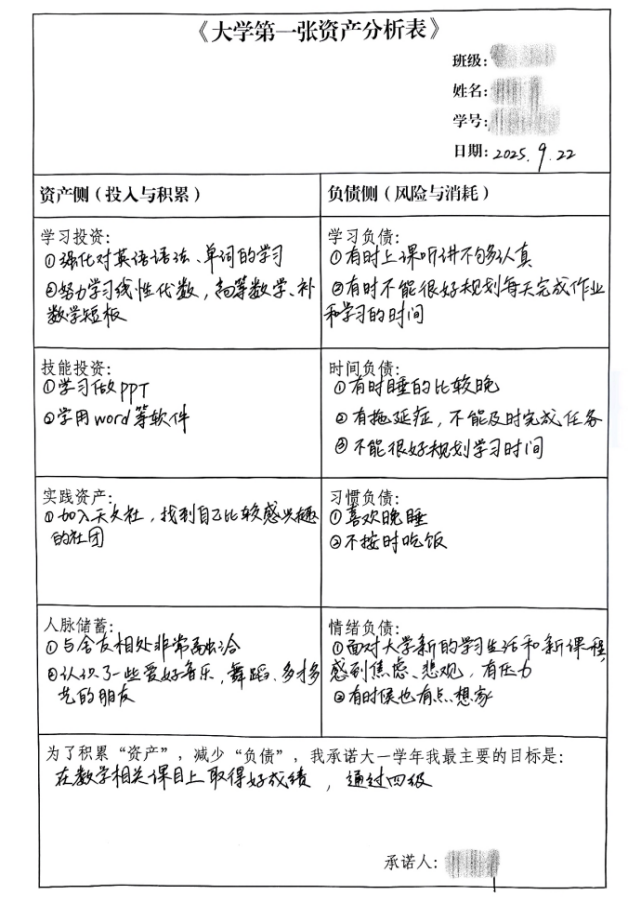 《大学第一张资产分析表》
班级:
姓名:
学号:
日期: 2025.9.22
资产侧（投入与积累）
负债侧（风险与消耗）
学习投资:
①强化对英语语法、单词的学习
②努力学习线性代数，高等数学、补
数学短板
学习负债:
①有时上课听讲不够认真
②有时不能很好规划每天完成作业
和学习的时间
技能投资:
①学习做PPT
②学用word等软件
时间负债:
①有时睡的比较晚
②有拖延症，不能及时完成任务
③不能很好规划学习时间
实践资产:
①加入天文社，找到自己比较感兴趣
的社团
习惯负债:
①喜欢晚睡
②不按时吃饭
人脉储蓄:
①与舍友相处非常融洽
②认识了一些爱好音乐，舞蹈、多才多
艺的朋友
情绪负债:
①面对大学新的学习生活和新课程，
感到焦虑、悲观，有压力
②有时候也有点想家
为了积累“资产”，减少“负债”，我承诺大一学年我最主要的目标是:
在数学相关课目上取得好成绩，通过四级
承诺人: